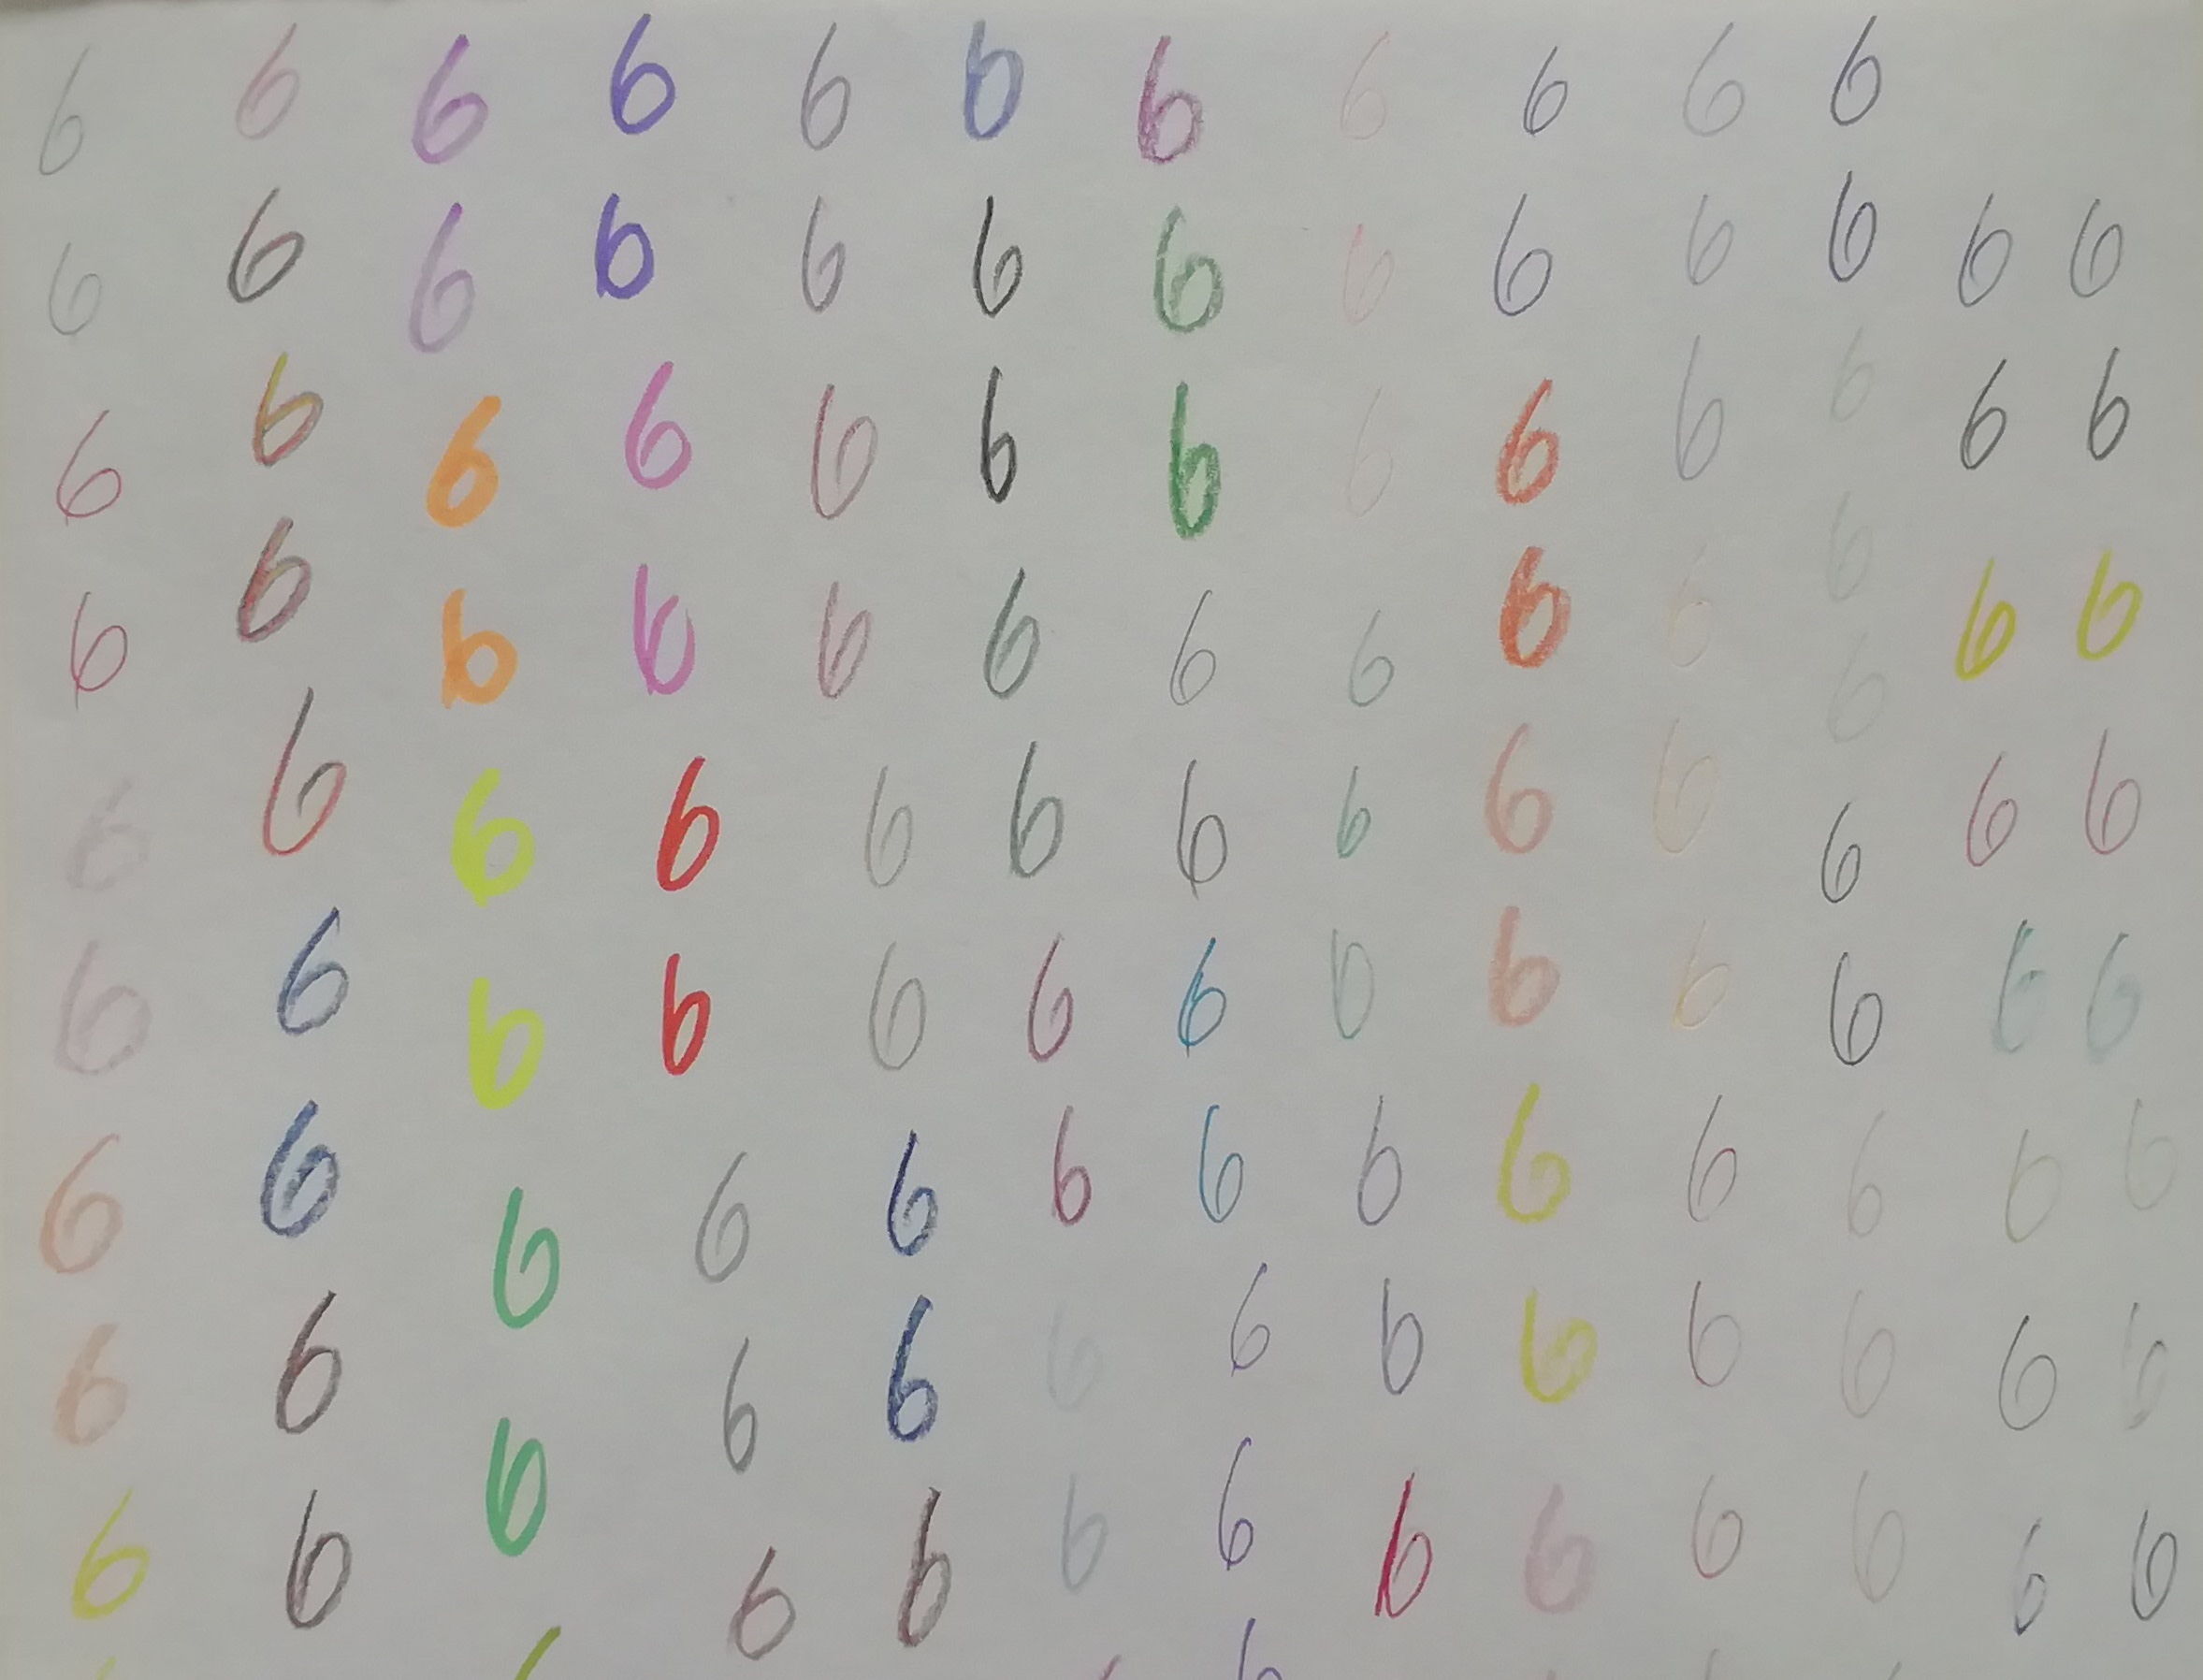 6 6 6 6 6 6 6 6 6 6 6
6 6 6 6 6 6 6 6 6 6 6 6 6
6 6 6 6 6 6 6 6 6 6 6 6 6
6 6 6 6 6 6 6 6 6 6 6 6 6
6 6 6 6 6 6 6 6 6 6 6 6 6 6
6 6 6 6 6 6 6 6 6 6 6 6 6
6 6 6 6 6 6 6 6 6 6 6 6 6
6 6 6 6 6 6 6 6 6 6 6 6 6
6 6 6 6 6 6 6 6 6 6 6 6